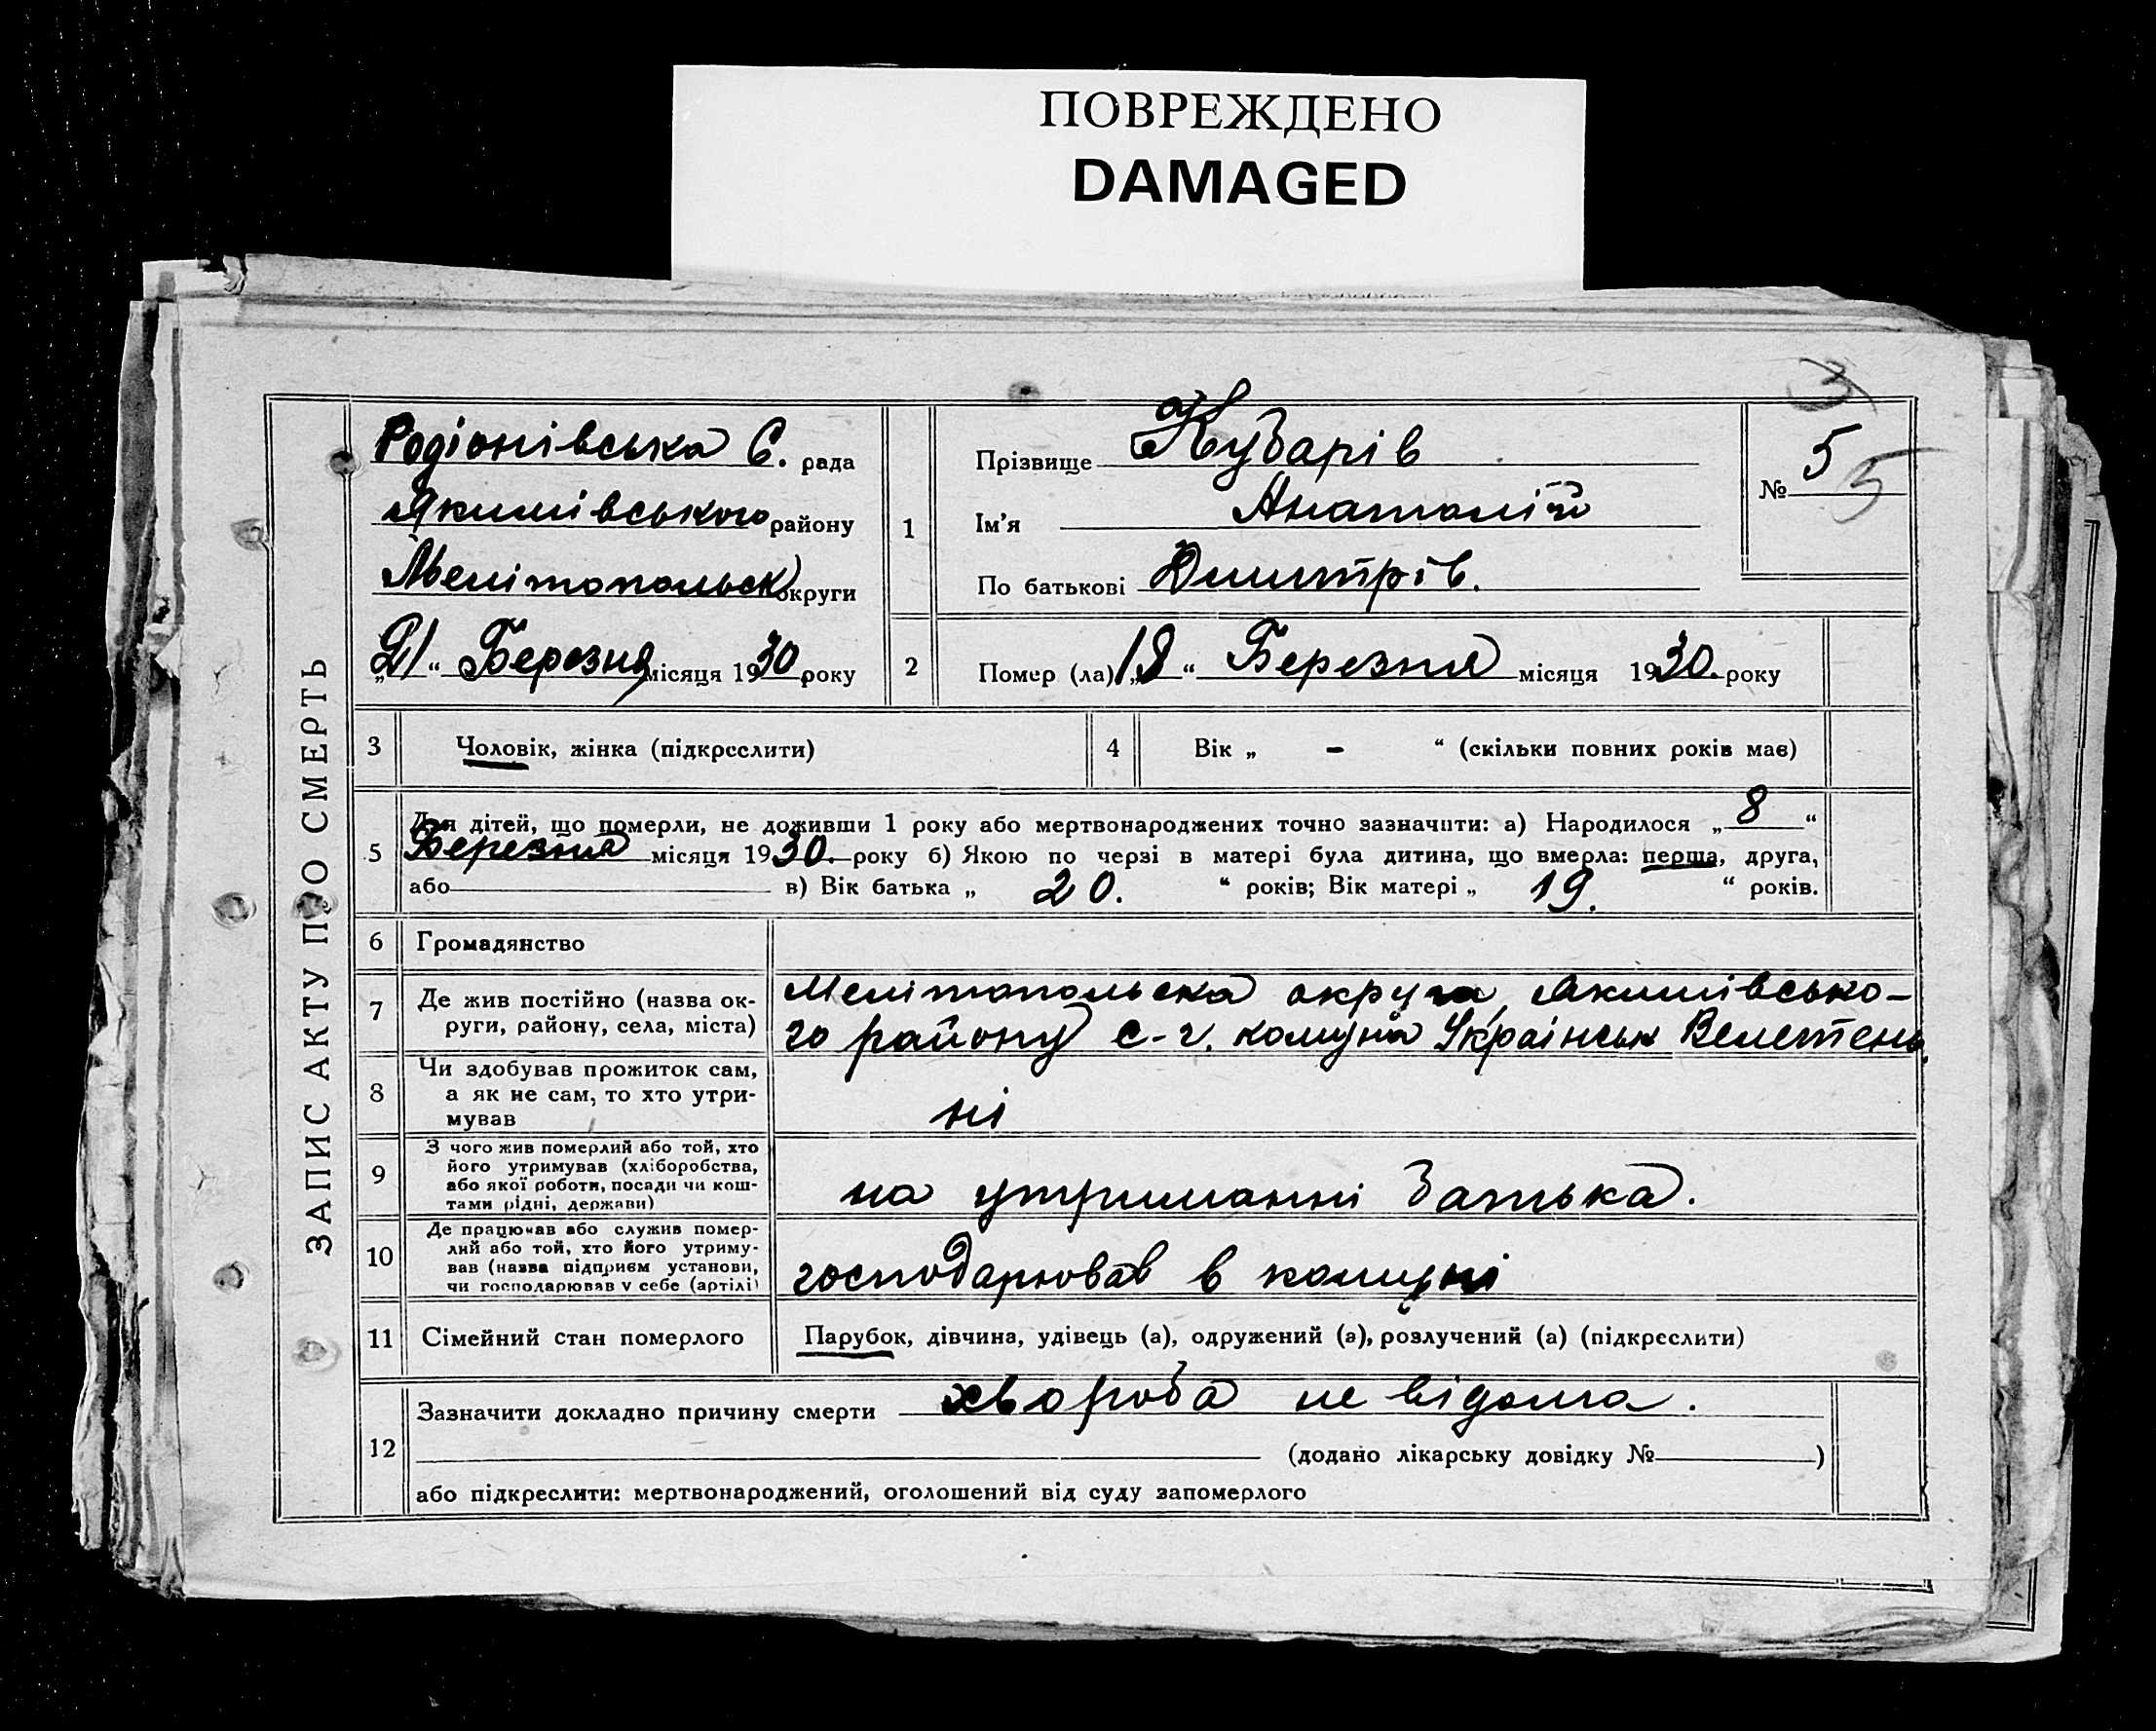 ПОВРЕЖДЕНО
DAMAGED
ЗАПИС АКТУ ПРО СМЕРТЬ
Родіонівська С. рада
Якимівського району
Мелітопольськ округи
„21“ Березня місяця 1930 року
1
Прізвище Кубарів
Ім'я Анатолій
По батькові Дмитрів.
№ 5
5
2
Помер (ла) „18“ Березня місяця 1930. року
3
Чоловік, жінка (підкреслити)
4
Вік „ - “ (скільки повних років має)
5
Для дітей, що померли, не доживши 1 року або мертвонароджених точно зазначити: а) Народилося „8“
Березня місяця 1930. року б) Якою по черзі в матері була дитина, що вмерла: перша, друга,
або в) Вік батька „ 20. “ років; Вік матері „ 19. “ років.
6
Громадянство
7
Де жив постійно (назва ок-
руги, району, села, міста)
Мелітопольська округа, Якимівсько-
го району с-г. комуна Українськ Велетень.
8
Чи здобував прожиток сам,
а як не сам, то хто утри-
мував
ні
9
З чого жив померлий або той, хто
його утримував (хліборобства,
або якої роботи, посади чи кош-
тами рідні, держави)
на утриманні батька.
10
Де працював або служив помер-
лий або той, хто його утриму-
вав (назва підприєм установи,
чи господарював у себе (артілі)
господарював в комуні
11
Сімейний стан померлого
Парубок, дівчина, удівець (а), одружений (а), розлучений (а) (підкреслити)
12
Зазначити докладно причину смерти хвороба не відома.
(додано лікарську довідку № )
або підкреслити: мертвонароджений, оголошений від суду запомерлого